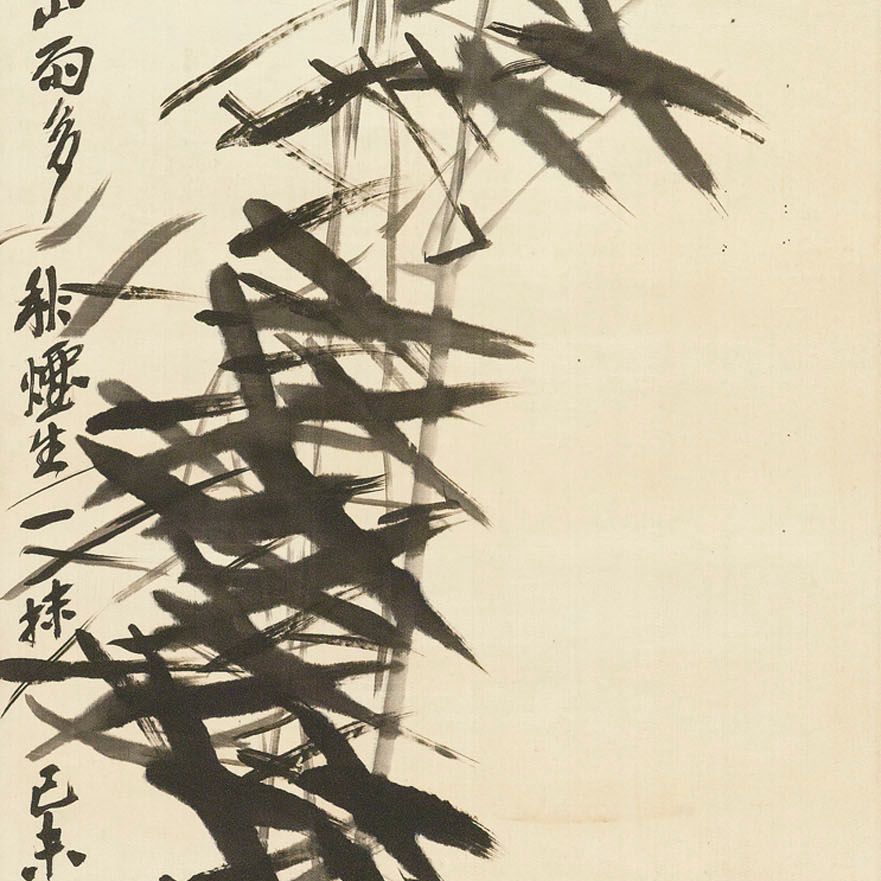 山雨多秋煙生一抹己未